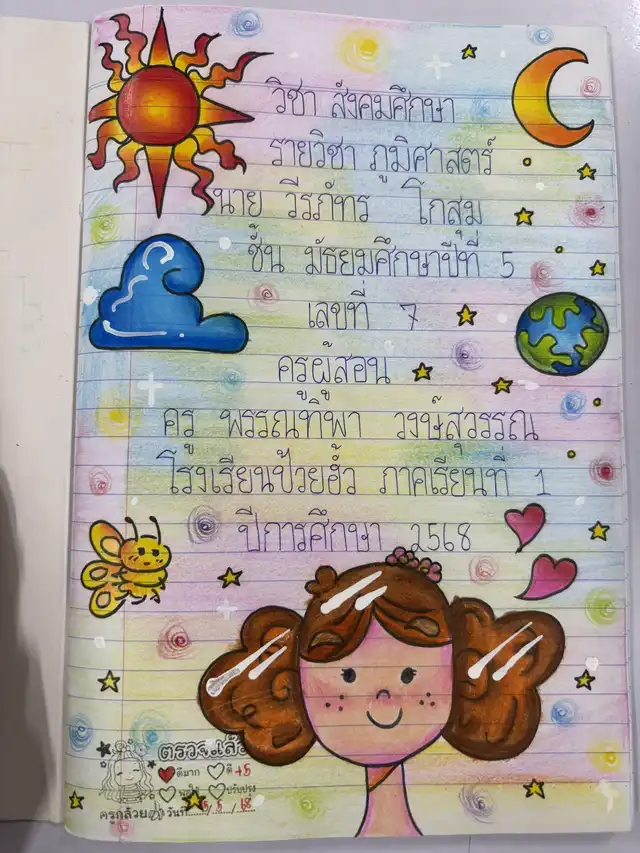 วิชา สังคมศึกษา
รายวิชา ภูมิศาสตร์
นาย วีรภัทร โกสุม
ชั้น มัธยมศึกษาปีที่ 5
เลขที่ 7
ครูผู้สอน
ครู พรรณทิพา วงษ์สุวรรณ
โรงเรียนป้วยฮั้ว ภาคเรียนที่ 1
ปีการศึกษา 2568
ตรวจแล้ว
ดีมาก ดี +5
พอใช้ ปรับปรุง
ครูกล้วย วันที่ / 5 / 68